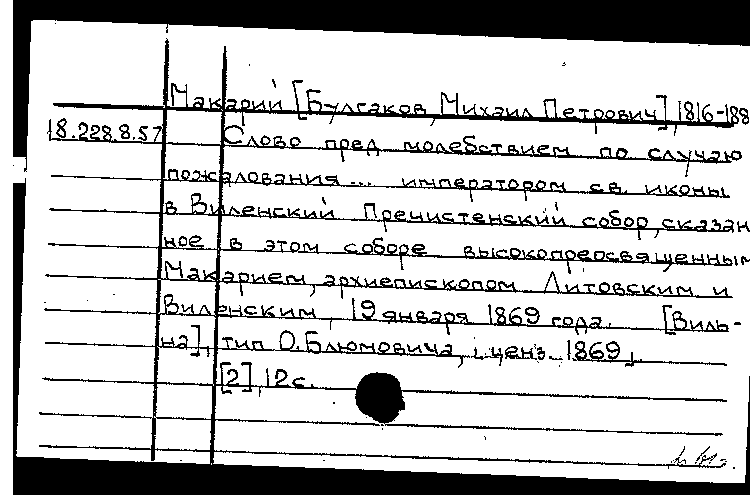 Макарий [Булгаков, Михаил Петрович], 1816-188
18.228.8.57 Слово пред молебствием по случаю
пожалования... императором св. иконы
в Виленский Пречистенский собор, сказан
ное в этом соборе высокопреосвященным
Макарием, архиепископом Литовским и
Виленским, 19 января 1869 года. [Виль-
на], тип О. Блюмовича, ценз. 1869.
[2], 12 с.